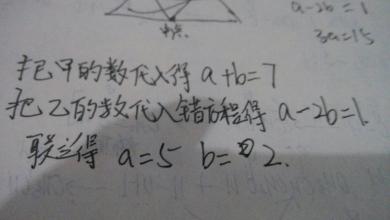 a-2b=1
3a=15
中点
把甲的数代入得 a+b=7
把乙的数代入错方程得 a-2b=1.
联立得 a=5 b=2.